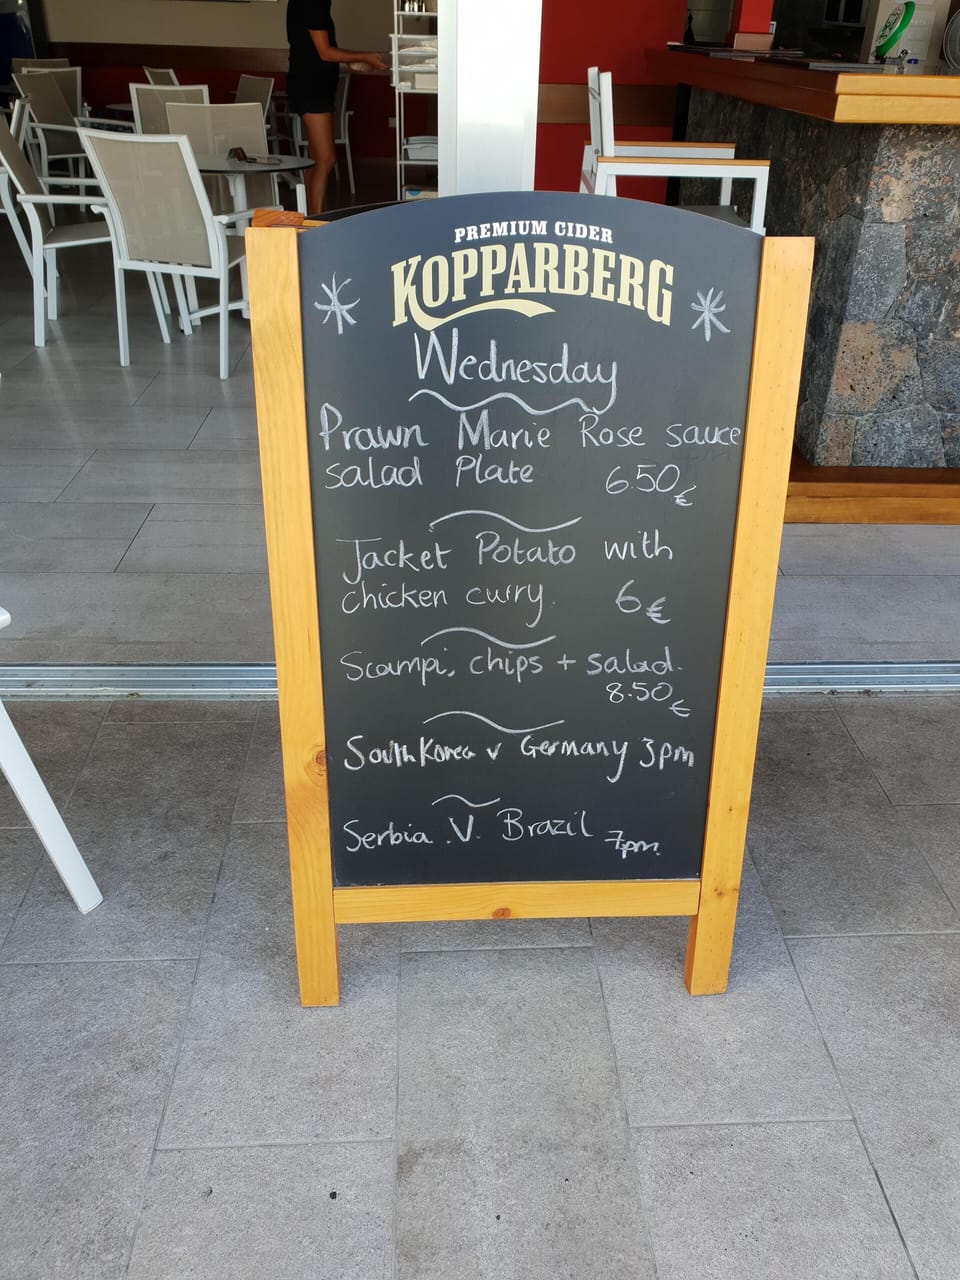 PREMIUM CIDER
KOPPARBERG
Wednesday
Prawn Marie Rose sauce
salad Plate 6.50€
Jacket Potato with
chicken curry. 6€
Scampi, chips + salad.
8.50€
South Korea v Germany 3pm
Serbia .V. Brazil 7pm.